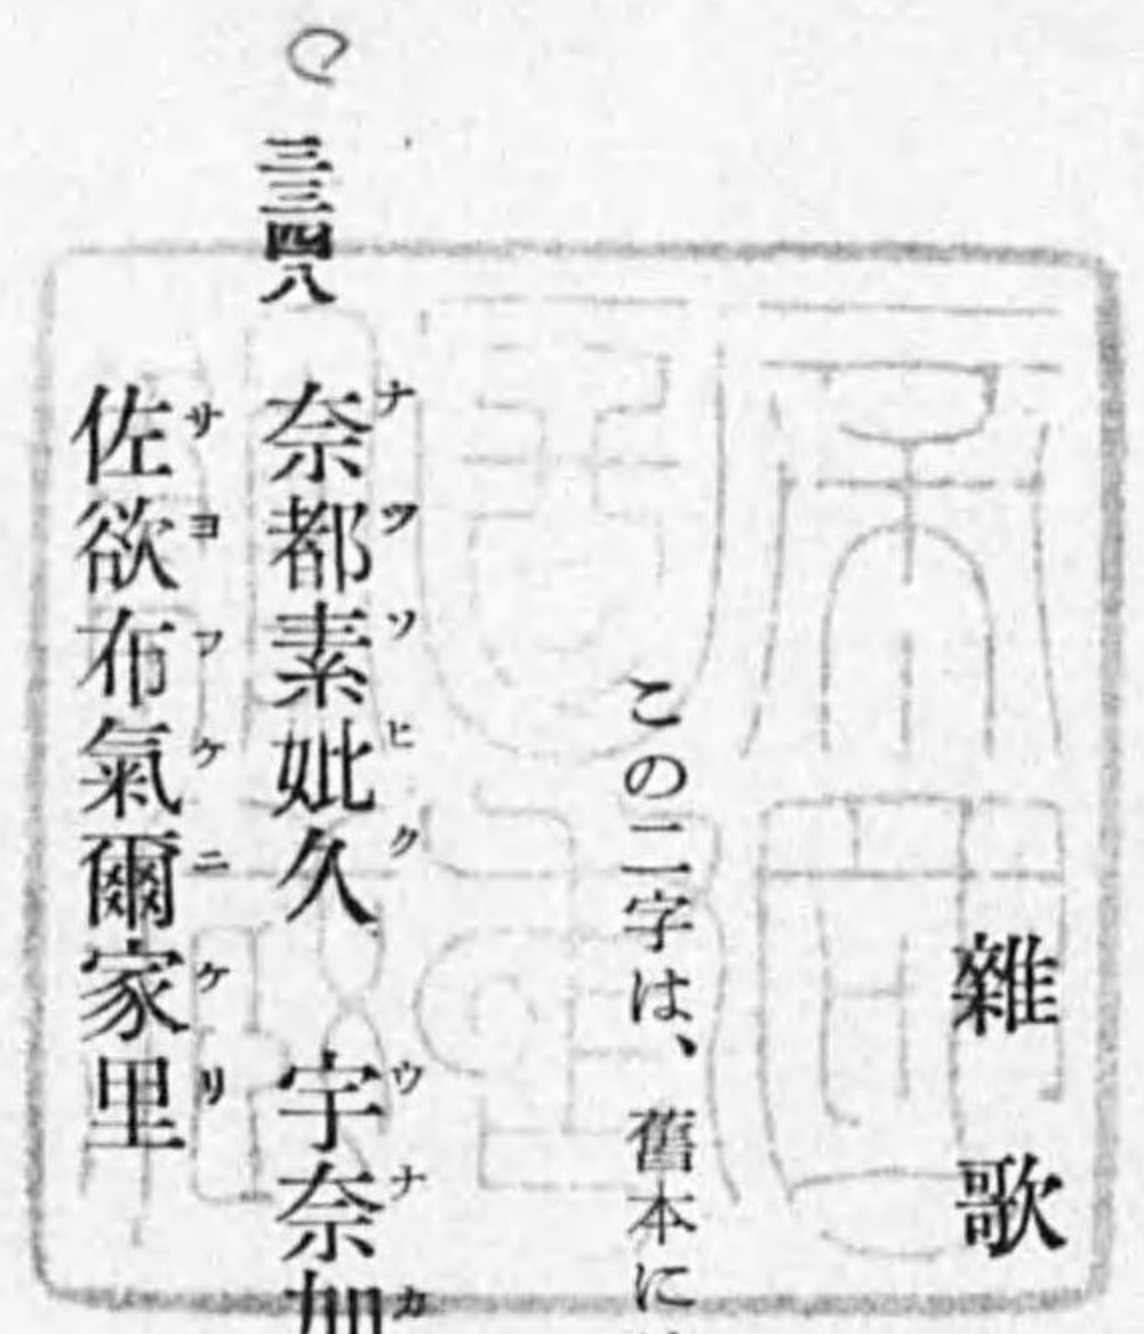 雜歌
この二字は、舊本に
三三四八 奈都素妣久 宇奈加
ナツソヒク ウナカ
佐欲布氣爾家里
サヨフケニケリ